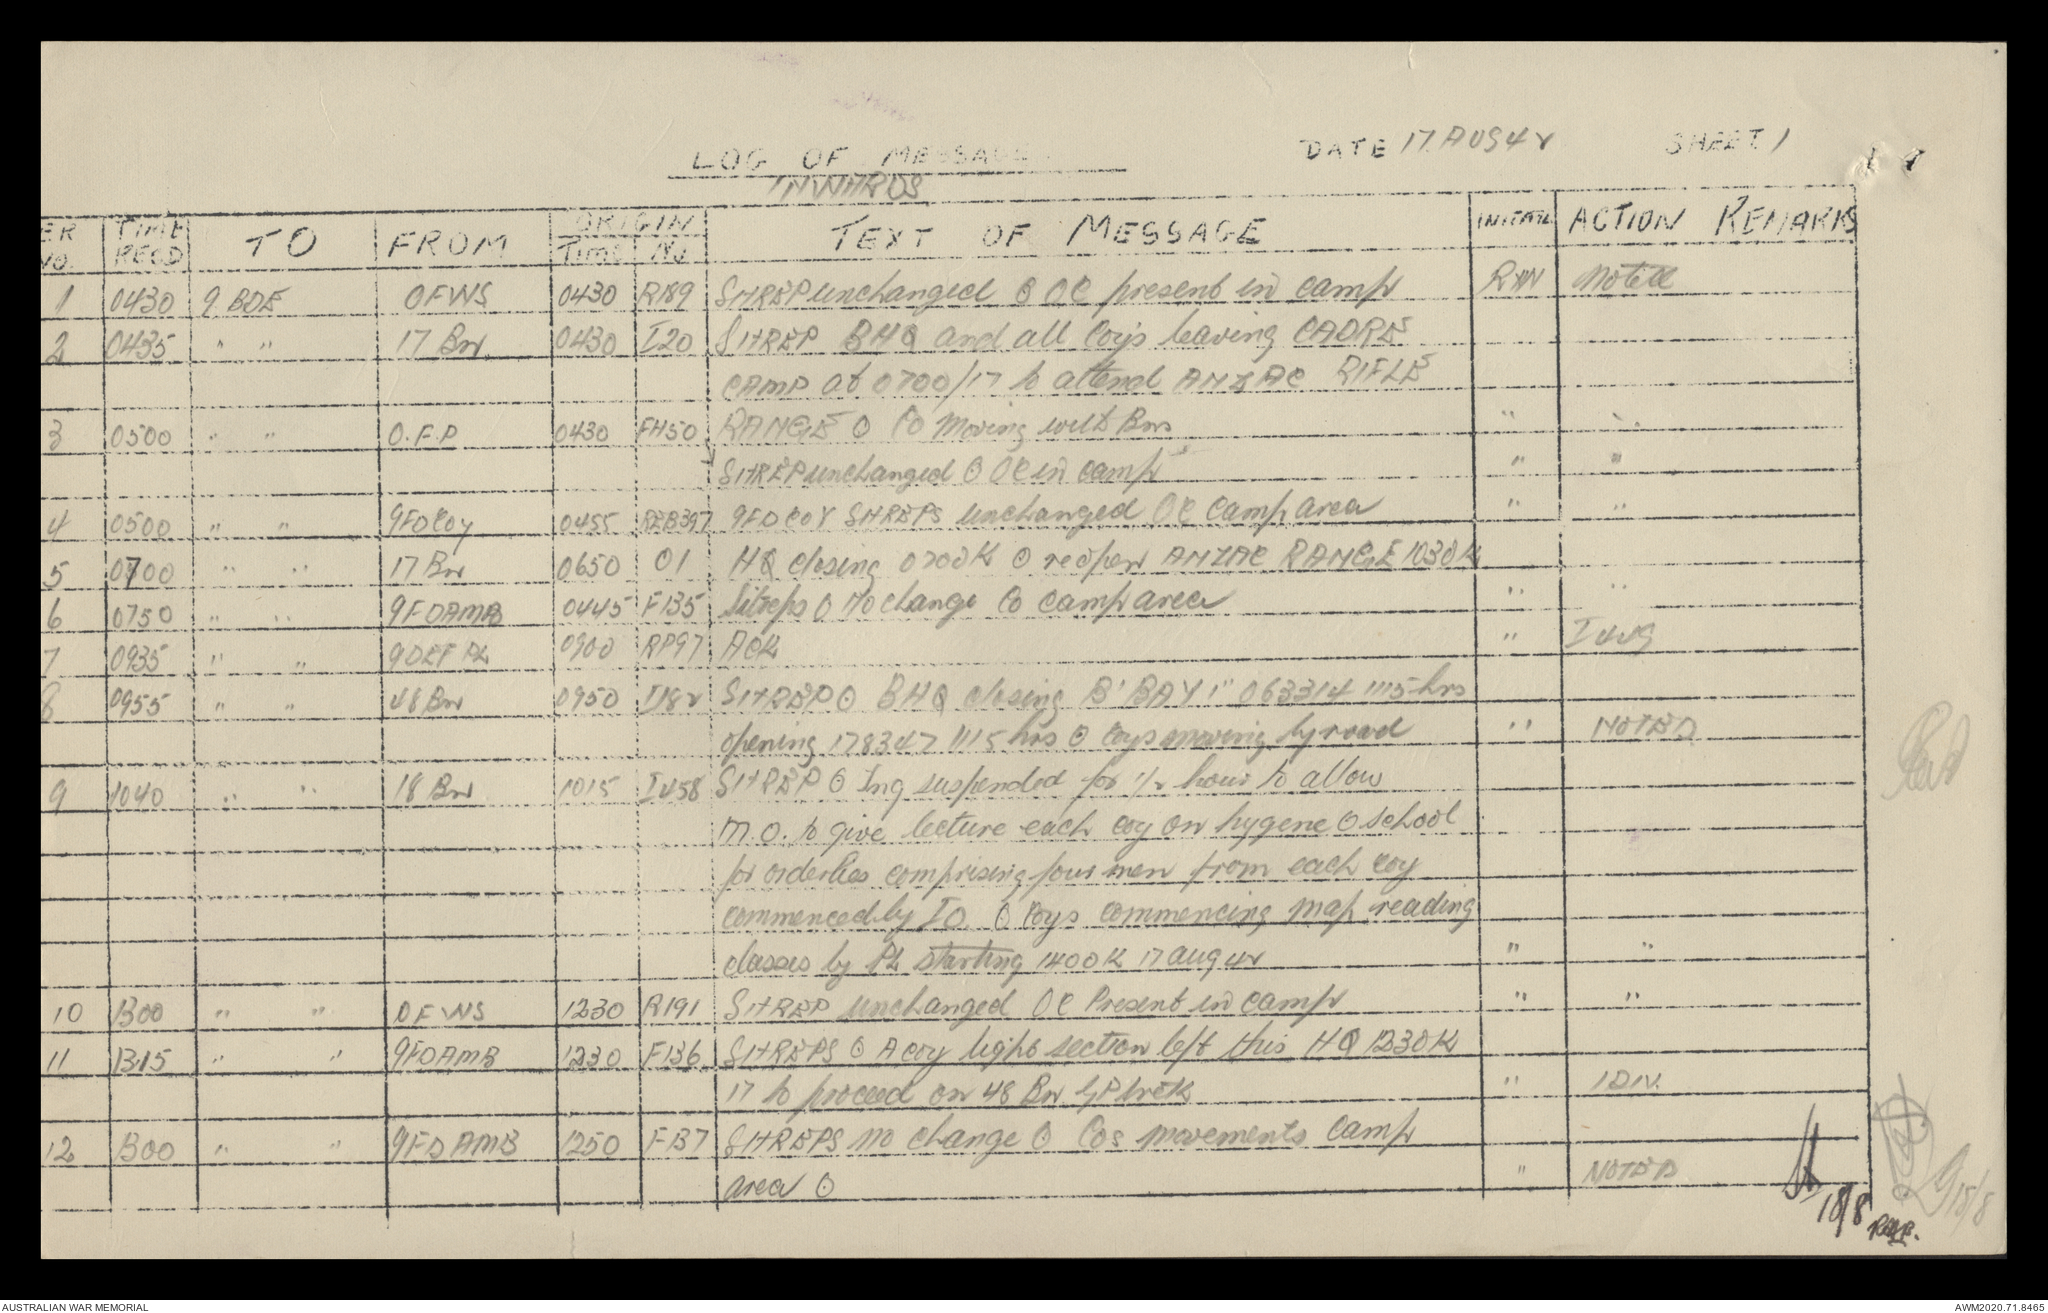 LOG OF MESSAGE
INWARDS
DATE 17 AUG 42 SHEET 1
ER NO. TIME RECD TO FROM ORIGIN TIME No TEXT OF MESSAGE INITIAL ACTION REMARKS
1 0430 9 BDE OFWS 0430 R189 SITREP unchanged ⊙ OC present in camp RHN Noted
2 0435 " " 17 Bn 0430 I20 SITREP BHQ and all Coys leaving CADRE
CAMP at 0700/17 to attend ANZAC RIFLE
3 0500 " " O.F.P 0430 FH50 RANGE ⊙ CO moving with Bn " "
SITREP unchanged ⊙ OC in camp " "
4 0500 " " 9FDCoy 0455 REB397 9FD COY SITREPS unchanged OC camp area " "
5 0700 " " 17 Bn 0650 O1 HQ closing 0700K ⊙ reopen ANZAC RANGE 1030K
6 0750 " " 9FDAMB 0445 F135 Sitreps ⊙ No change Co camp area " "
7 0935 " " 9DEF PL 0900 RP97 ACK " I449
8 0955 " " 48 Bn 0950 I182 SITREP ⊙ BHQ closing B'BAY 1" 063314 1115 hrs
opening 178347 1115 hrs ⊙ Coys moving by road " NOTED
9 1040 " " 18 Bn 1015 I458 SITREP ⊙ Tng suspended for 1/2 hour to allow
M.O. to give lecture each coy on hygene ⊙ School
for orderlies comprising four men from each coy
commenced by IO ⊙ Coys commencing map reading
classes by PL starting 1400K 17 aug 42 " "
10 1300 " " OFWS 1230 R191 SITREP unchanged OC Present in camp " "
11 1315 " " 9FDAMB 1230 F136 SITREPS ⊙ A coy light section left this HQ 1230K
17 to proceed on 48 Bn GP trek " 1DIV.
12 1300 " " 9FDAMB 1250 F137 SITREPS no change ⊙ Cos movements camp
area ⊙ " NOTED
18/8
15/8
AUSTRALIAN WAR MEMORIAL AWM2020.71.8465